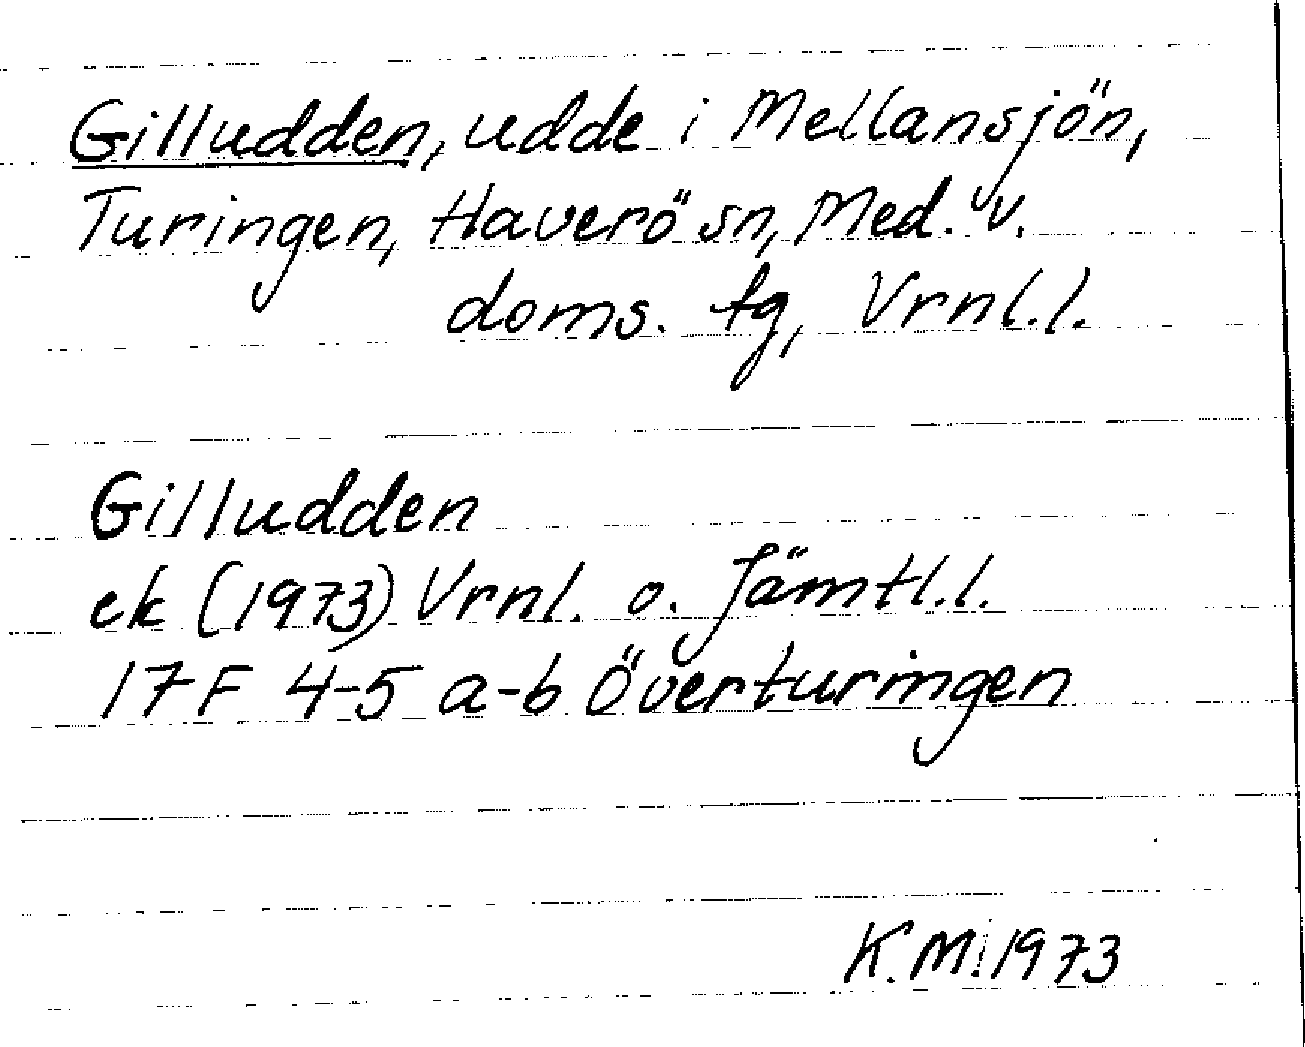 Gilludden, udde i Mellansjön,
Turingen, Haverö sn, Med. v.
doms. tg, Vrnl.l.
Gilludden
ek (1973) Vrnl. o. Jämtl.l.
17F 4-5 a-b Överturingen
K.M. 1973